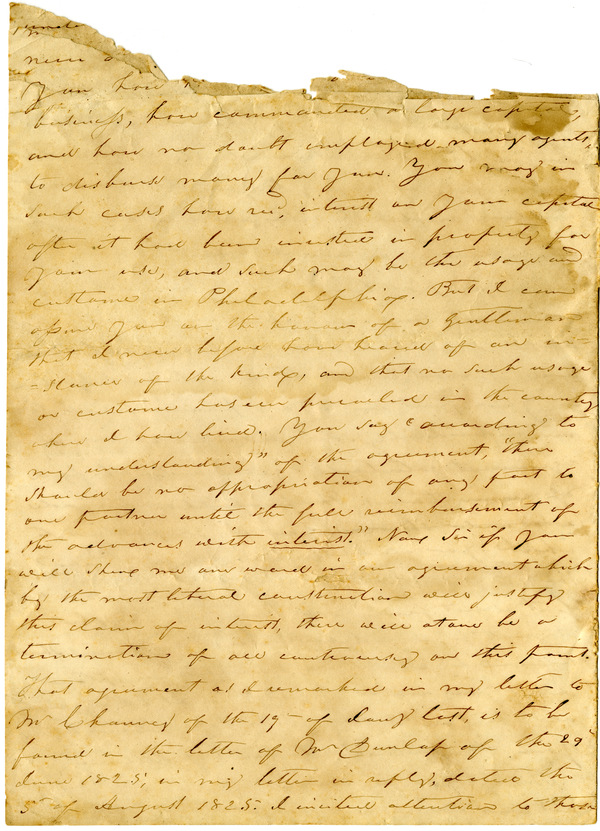 never
You have
business, have commanded a large capital,
and have no doubt employed many agents,
to disburse money for you. You may in
such cases have recd, interest on your capital
after it had been invested in property for
your use, and such may be the usage and
custome in Philadelphia. But I can
assure you on the honour of a Gentleman
that I never before have heard of an in-
-stance of the kind, and that no such usage
or custome has ever prevailed in the country
where I have lived. You say "according to
my understanding" of the agreement, "there
should be no appropriation of any part to
one partner until the full reimbursement of
the advances with interest." Now Sir if you
will shew me one word in our agreement which
by the most liberal construction will justify
this claim of interest, there will at once be a
termination of all controversy on this point.
That agreement as I remarked in my letter to
Mr Chauncey of the 19th of Jany last, is to be
found in the letter of Mr Dunlap of the 29th
June 1825, in my letter in reply, dated the
5th of August 1825. I invited attention to those